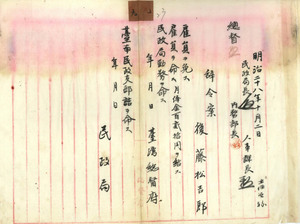 總督
明治二十八年十月二日
民政局長
內務部長
人事課長
辭令案
後藤松吉郎
雇員ヲ免ス
雇員ヲ命ス 月俸金百貳拾円ヲ給ス
民政局勤務ヲ命ス
年月日
臺灣總督府
臺南民政支部詰ヲ命ス
年月日
民政局